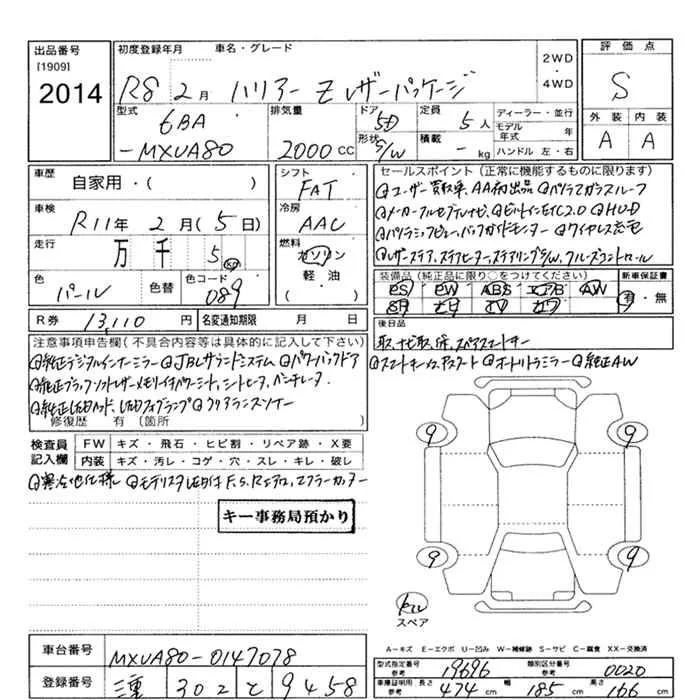 出品番号
[1909]
2014
初度登録年月 車名・グレード
R8 2月 ハリアー Z レザーパッケージ
2WD
・
4WD
評価点
S
外装 内装
A A
型式
6BA
-MXUA80
排気量
2000 CC
ドア 5D
形状 S/W
定員 5人
積載 - kg
ディーラー・並行
モデル年式 年
ハンドル 左・右
車歴
自家用・( )
車検
R11年 2月(5日)
走行
万 千 5 km
色
パール
色替
色コード
089
シフト
FAT
冷房
AAC
燃料
ガソリン
軽・油
( )
R券 13,110円
名変通知期限 月 日
セールスポイント(正常に機能するものに限ります)
◎ユーザー買取車、AA初出品 ◎パノラマガラスルーフ
◎メーカーフルセグTVナビ、◎ビルトインETC2.0 ◎HUD
◎パノラミックビュー、バックガイドモニター ◎ワイヤレス充電
◎レザーステア、ステアヒーター、ステアリングS/W、クルーズコントロール
装備品(純正品に限り○をつけてください)
PS PW ABS エアB AW
SR ナビ TV カワ
新車保証書
有・無
後日品
取、ナビ取、保、スペアスマートキー
◎スマートキーx2、アスタート ◎オートリトラミラー ◎純正AW
注意事項申告欄(不具合内容等は具体的に記入して下さい)
◎純正デジタルインナーミラー ◎JBLサウンドシステム ◎パワーバックドア
◎純正ブラックソフトレザーメモリ付パワーシート、シートヒーター、ベンチレーター
◎純正LEDヘッド、LEDフォグランプ ◎クリアランスソナー
修復歴 有 (箇所 )
検査員記入欄
FW キズ・飛石・ヒビ割・リペア跡・X要
内装 キズ・汚レ・コゲ・穴・スレ・キレ・破レ
◎寒冷地仕様 ◎モデリスタLED付F、S、Rエアロ、マフラーカッター
キー事務局預かり
9 9
9 9
スペア
A-キズ E-エクボ U-凹み W-補修跡 S-サビ C-腐食 XX-交換済
車台番号 MXUA80-0147078
登録番号 三重 302 と 9458
型式指定番号 参考 19696
類別区分番号 参考 0020
車庫証明用 参考 長さ 474 cm 幅 185 cm 高さ 166 cm